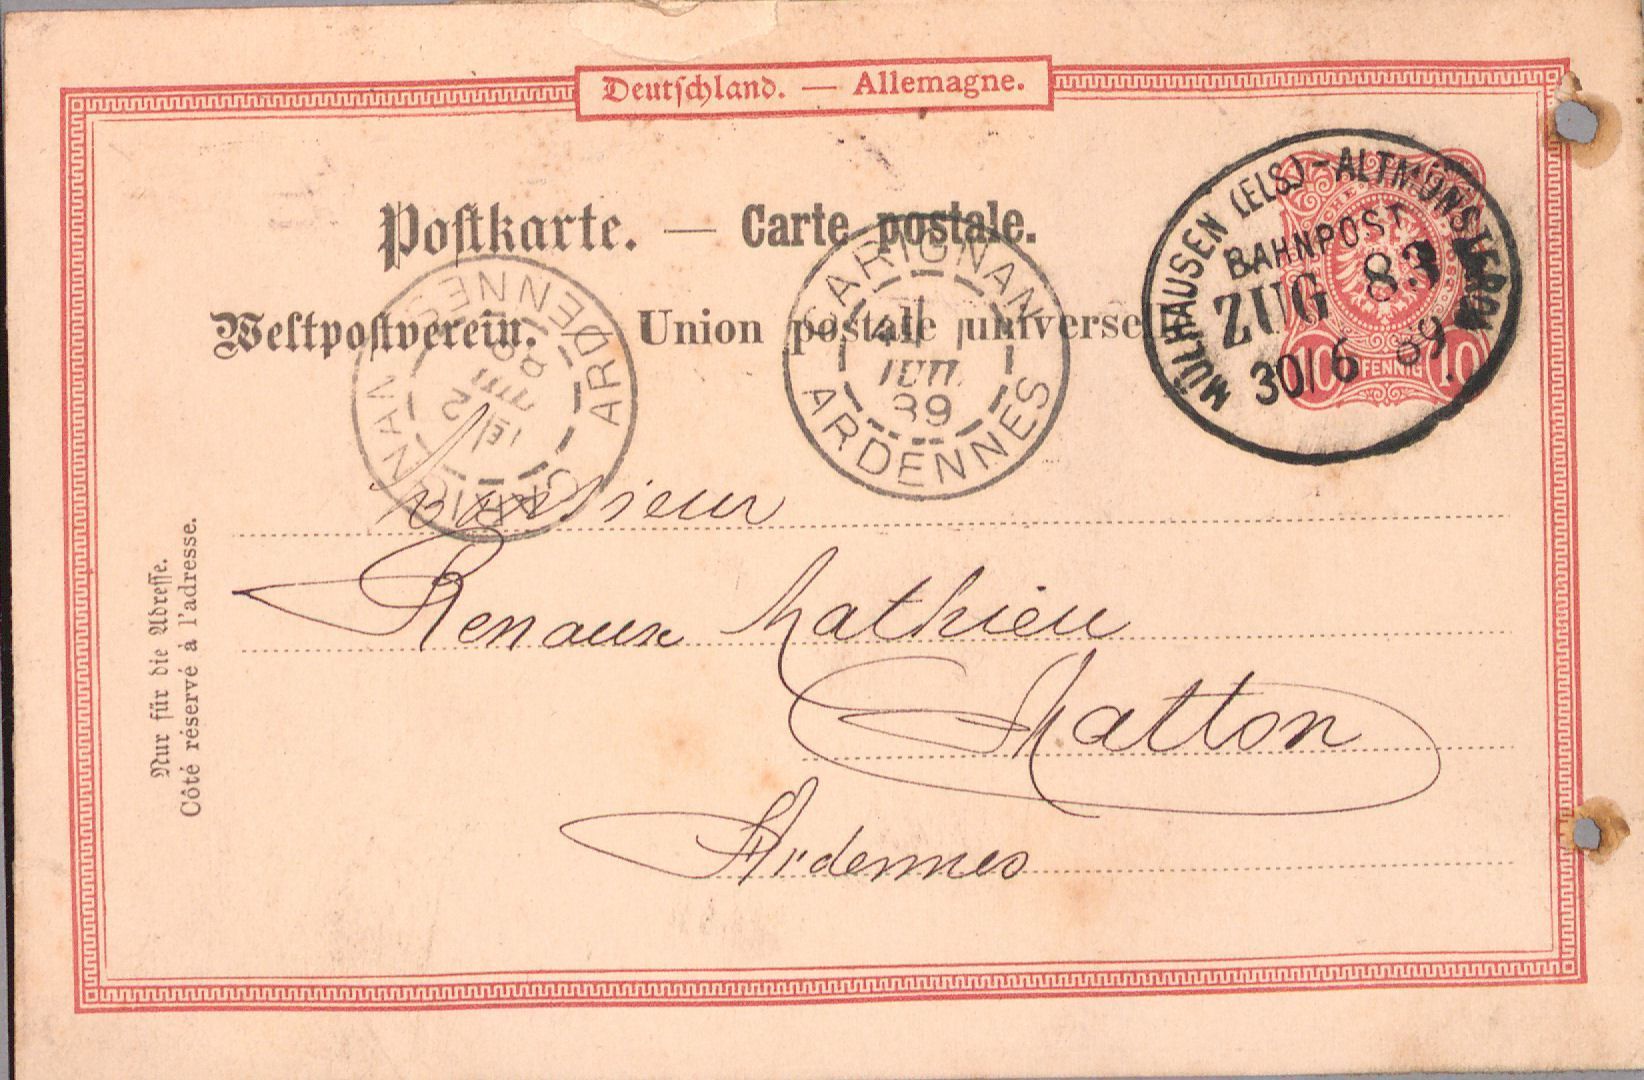 Deutschland. — Allemagne.
Postkarte. — Carte postale.
Weltpostverein. Union postale universelle
MÜLHAUSEN (ELS) - ALTMÜNSTEROL
BAHNPOST
ZUG 83
30/6 89.
10 PFENNIG 10
CARIGNAN
JUIL
89
ARDENNES
CARIGNAN
ARDENNES
Monsieur
Renaux Mathieu
Matton
Ardennes
Nur für die Adresse.
Côté réservé à l'adresse.